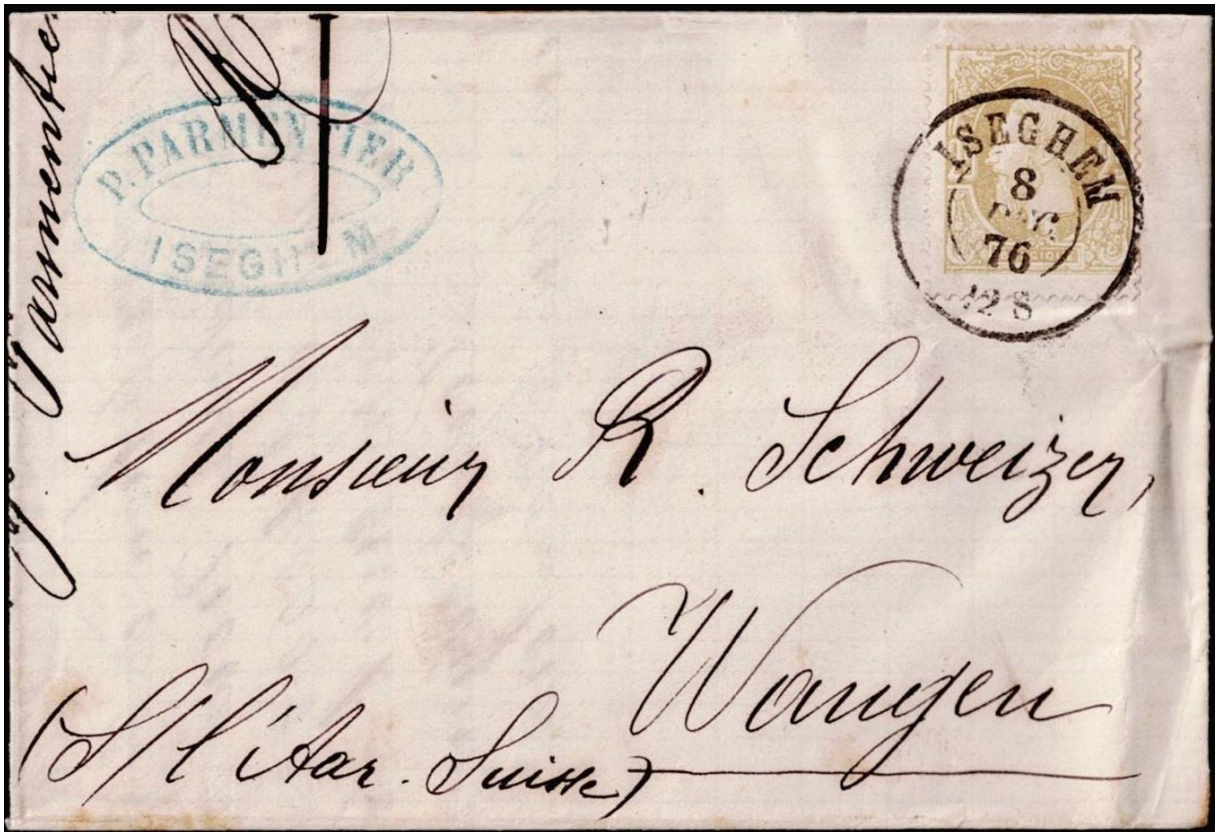 Parmentie
P. PARMENTIER
ISEGHEM
ISEGHEM
8
DEC
76
12 S
Monsieur R. Schweizer,
Wangen
(S/l'Aar. Suisse)